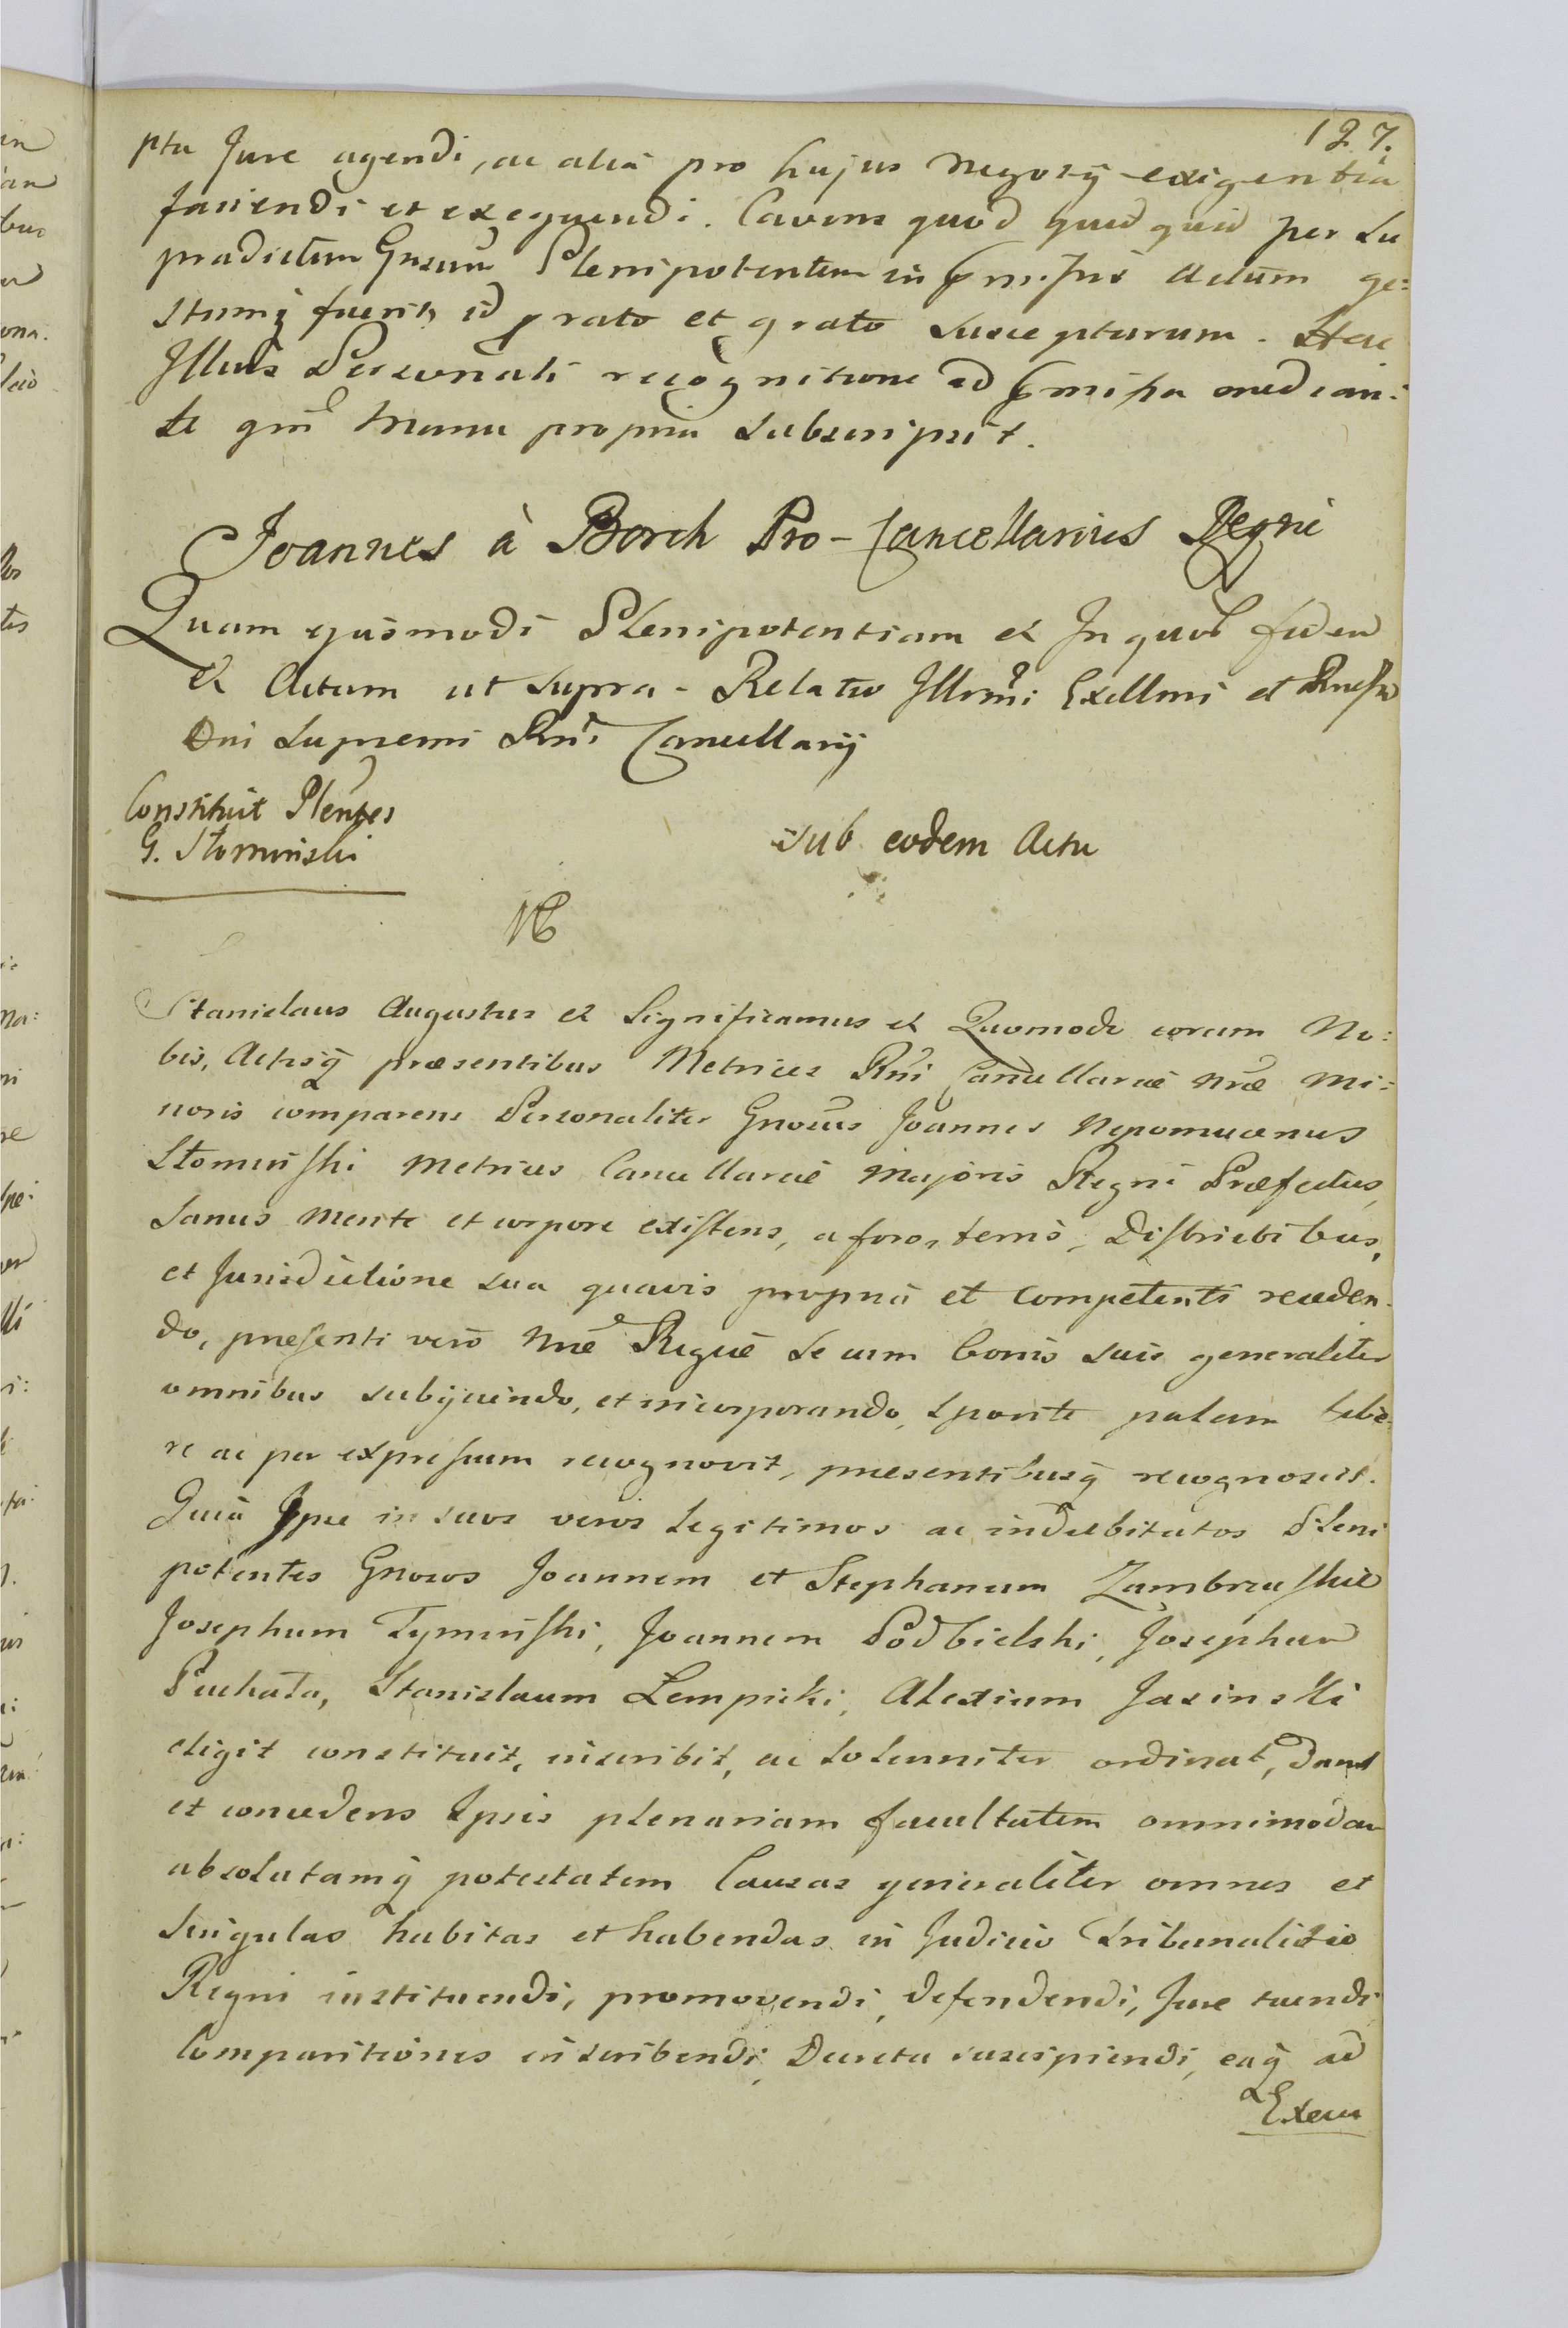 127.
ptu Jure agendi, ac alia pro hujus negotij exigentia
faciendi et exequendi. Cavens quod quidquid per su
pradictum Gnsum Plenipotentem in pmissis actum ge:
stumq fuerit, id grato et grato suscepturum. Hac
Illius Personali recognitione ad pmissa median:
te qm manu propria subscripsit.
Joannes à Borch Pro-Cancellarius Regni
Quam ejusmodi Plenipotentiam et In quor fidem
et Actum ut supra - Relatio Illrmi Exellmi et
Dni Supremi Rni Cancellarij
Constituit Plentes
G. Słominski
sub eodem Actu
Stanislaus Augustus et Significamus et Quomodo coram No:
bis, Actisq præsentibus Metrices Rni Cancellariæ nræ Mi:
noris comparens Personaliter Gnosus Joannes Nepomucenus
Słomiński Metrices Cancellariæ Majoris Regni Præfectus,
Sanus mente et corpore existens, a foro, terris, Districtibus,
et Jurisdictione sua quavis propria et competenti receden-
do, præsenti vero nræ Regiæ se cum bonis suis generaliter
omnibus subijciendo, et incorporando, sponte palam libe-
re ac per expressum recognovit, præsentibusq recognoscit.
Quia Ipse in suos veros Legitimos ac indubitatos Pleni
potentes Gnosos Joannem et Stephanum Zambrzuskie
Josephum Tyminski, Joannem Podbielski, Josephum
Puchała, Stanislaum Lempicki, Alexium Jasinski
eligit constituit, inscribit, ac solenniter ordinat, dans
et concedens Ipsis plenariam facultatem omnimodam
absolutamq potestatem Causas generaliter omnes et
singulas habitas et habendas in Judicio Tribunalitio
Regni instituendi, promovendi, defendendi, Jure tuendi
Comparitiones inscribendi, Decreta suscipiendi, eaq ad
Execu